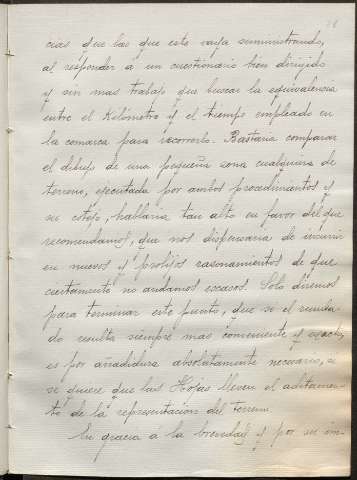 cias que las que este vaya suministrando,
al responder á un cuestionario bien dirijido
y sin mas trabajo que buscar la equivalencia
entre el Kilómetro y el tiempo empleado en
la comarca para recorrerlo. Bastaria comparar
el dibujo de una pequeña zona cualquiera de
terreno, ejecutada por ambos procedimientos y
su cotejo, hablaria tan alto en favor del que
recomendamos, que nos dispensaria de incurrir
en nuevos y prolijos rasonamientos de que
ciertamente no andamos escasos. Solo diremos
para terminar este punto, que si el resulta-
do resulta siempre mas conveniente y exacto,
es por añadidura absolutamente necesario, si
se quiere que las Hojas lleven el aditamen-
to de la representacion del terreno.
En gracia á la brevedad y por su im-